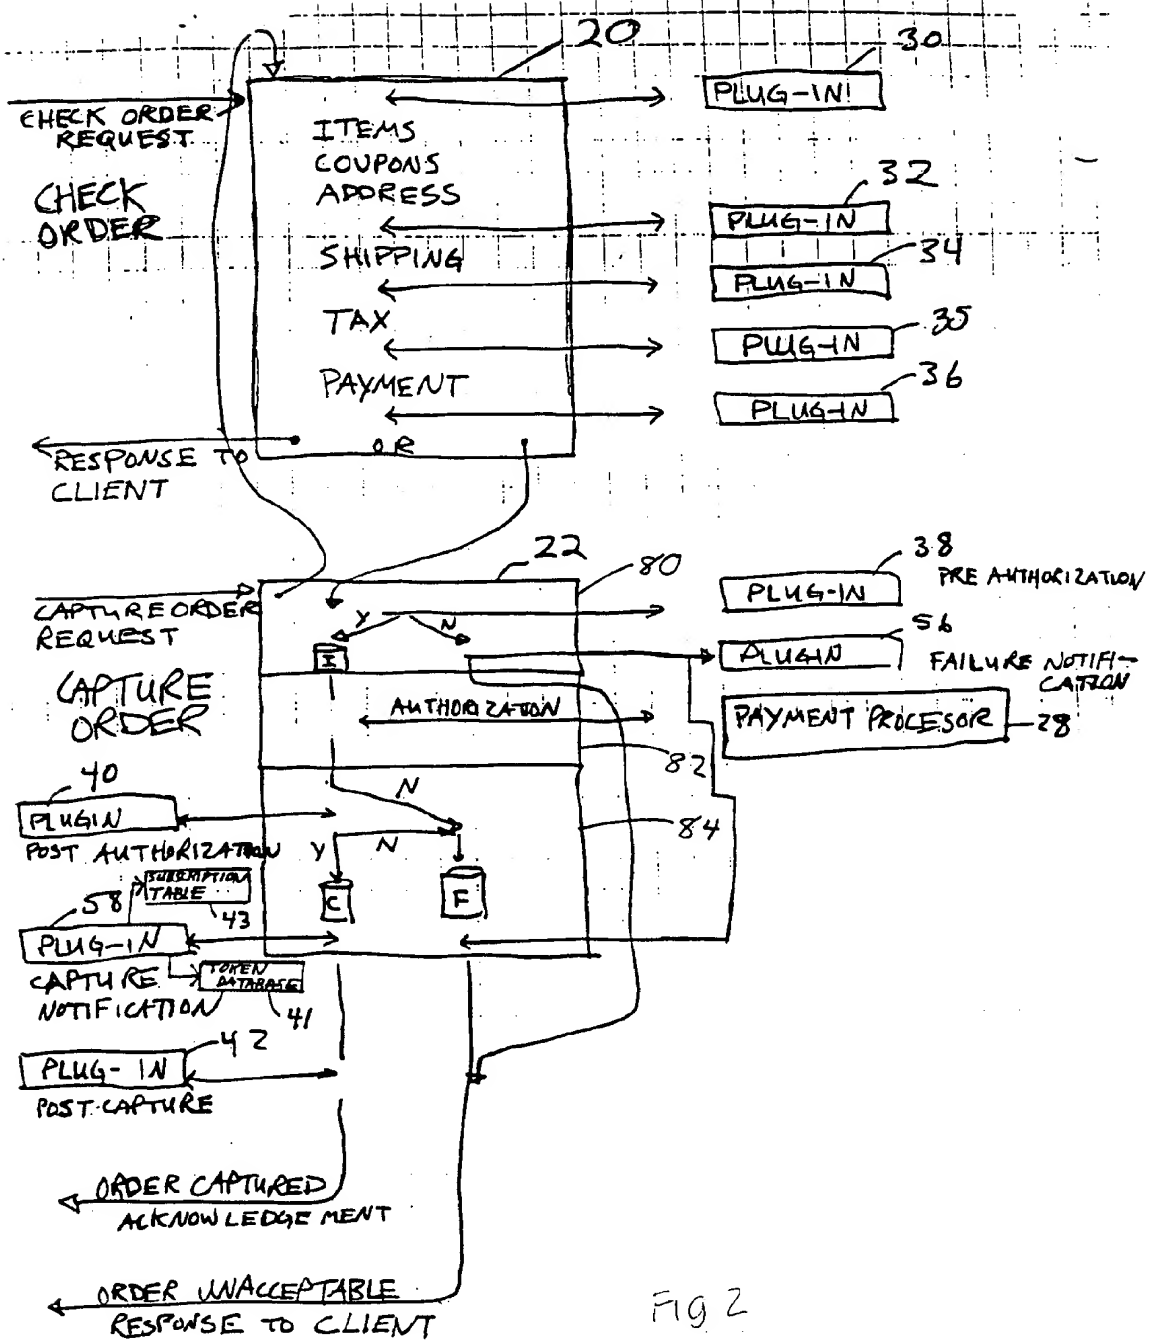 20
30
PLUG-IN
CHECK ORDER
REQUEST
ITEMS
COUPONS
ADDRESS
CHECK
ORDER
32
PLUG-IN
SHIPPING
34
PLUG-IN
TAX
35
PLUG-IN
PAYMENT
36
PLUG-IN
OR
RESPONSE TO
CLIENT
22
80
38
PLUG-IN
PRE AUTHORIZATION
CAPTURE ORDER
REQUEST
Y
N
I
56
PLUGIN
FAILURE NOTIFI-
CATION
CAPTURE
ORDER
AUTHORIZATION
PAYMENT PROCESOR
28
82
40
N
PLUGIN
84
POST AUTHORIZATION
Y
N
SUBSRIPTION
TABLE
C
F
58
43
PLUG-IN
CAPTURE
NOTIFICATION
TOKEN
DATABASE
41
42
PLUG-IN
POST-CAPTURE
ORDER CAPTURED
ACKNOWLEDGEMENT
ORDER UNACCEPTABLE
RESPONSE TO CLIENT
FIG 2